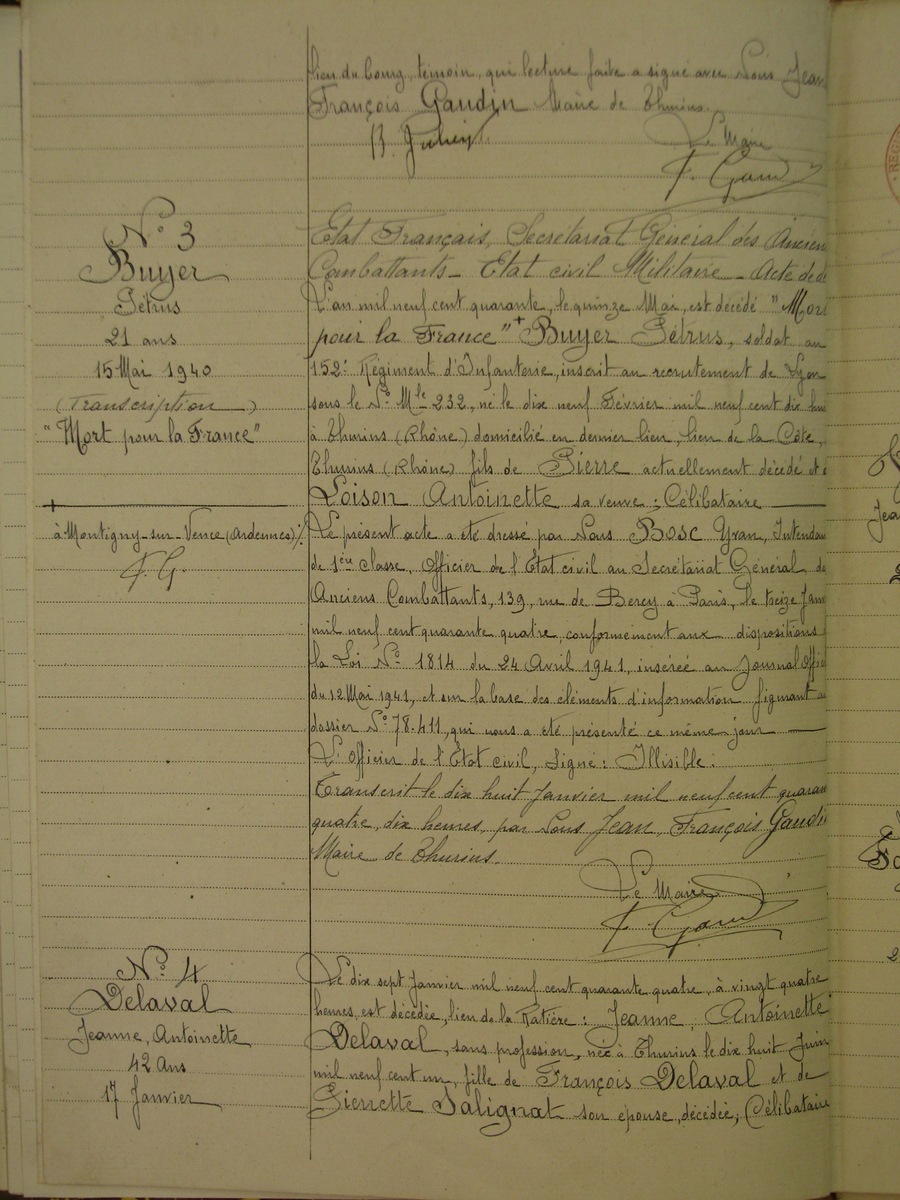 lieu du bourg, témoin, qui lecture faite a signé avec Nous Jean
François Gaudin Maire de Thurins.
Le Maire
F. Gaud
N° 3
Buyer
Pétrus
21 ans
15 Mai 1940
(Transcription)
"Mort pour la France"
+
à Montigny-sur-Vence (Ardennes)/.
F. G.
Etat Français, Secrétariat Général des Ancien
Combattants - Etat civil Militaire - Acte de d
L'an mil neuf cent quarante, le quinze Mai, est décédé "Mort
pour la France" + Buyer Pétrus, soldat au
152e Régiment d'Infanterie, inscrit au recrutement de Lyon
sous le N° Mle 232, né le dix neuf Février mil neuf cent dix hu
à Thurins (Rhône) domicilié en dernier lieu, lieu de la Côte,
Thurins (Rhône) fils de Pierre actuellement décédé et d
Loison Antoinette sa veuve ; Célibataire
Le présent acte a été dressé par Nous Bosc Yvan, Intendan
de 1ère classe, Officier de l'Etat civil au Secrétariat Général de
Anciens Combattants, 139, rue de Bercy à Paris, le treize Jan
mil neuf cent quarante quatre, conformément aux dispositions
la Loi N° 1814 du 24 Avril 1941, insérée au Journal Offic
du 12 Mai 1941, et sur la base des éléments d'information figurant au
dossier N° 78.411, qui nous a été présenté ce même jour
L'Officier de l'Etat civil, Signé : Illisible :
Transcrit le dix huit Janvier mil neuf cent quaran
quatre, dix heures, par Nous Jean François Gaudin
Maire de Thurins.
Le Maire
F. Gaud
N° 4
Delaval
Jeanne, Antoinette
42 Ans
17 Janvier
Le dix sept Janvier mil neuf cent quarante quatre, à vingt quatre
heures, est décédée, lieu de la Ratière : Jeanne, Antoinette
Delaval, sans profession, née à Thurins le dix huit Juin
mil neuf cent un, fille de François Delaval et de
Pierrette Salignat son épouse, décédée; Célibataire